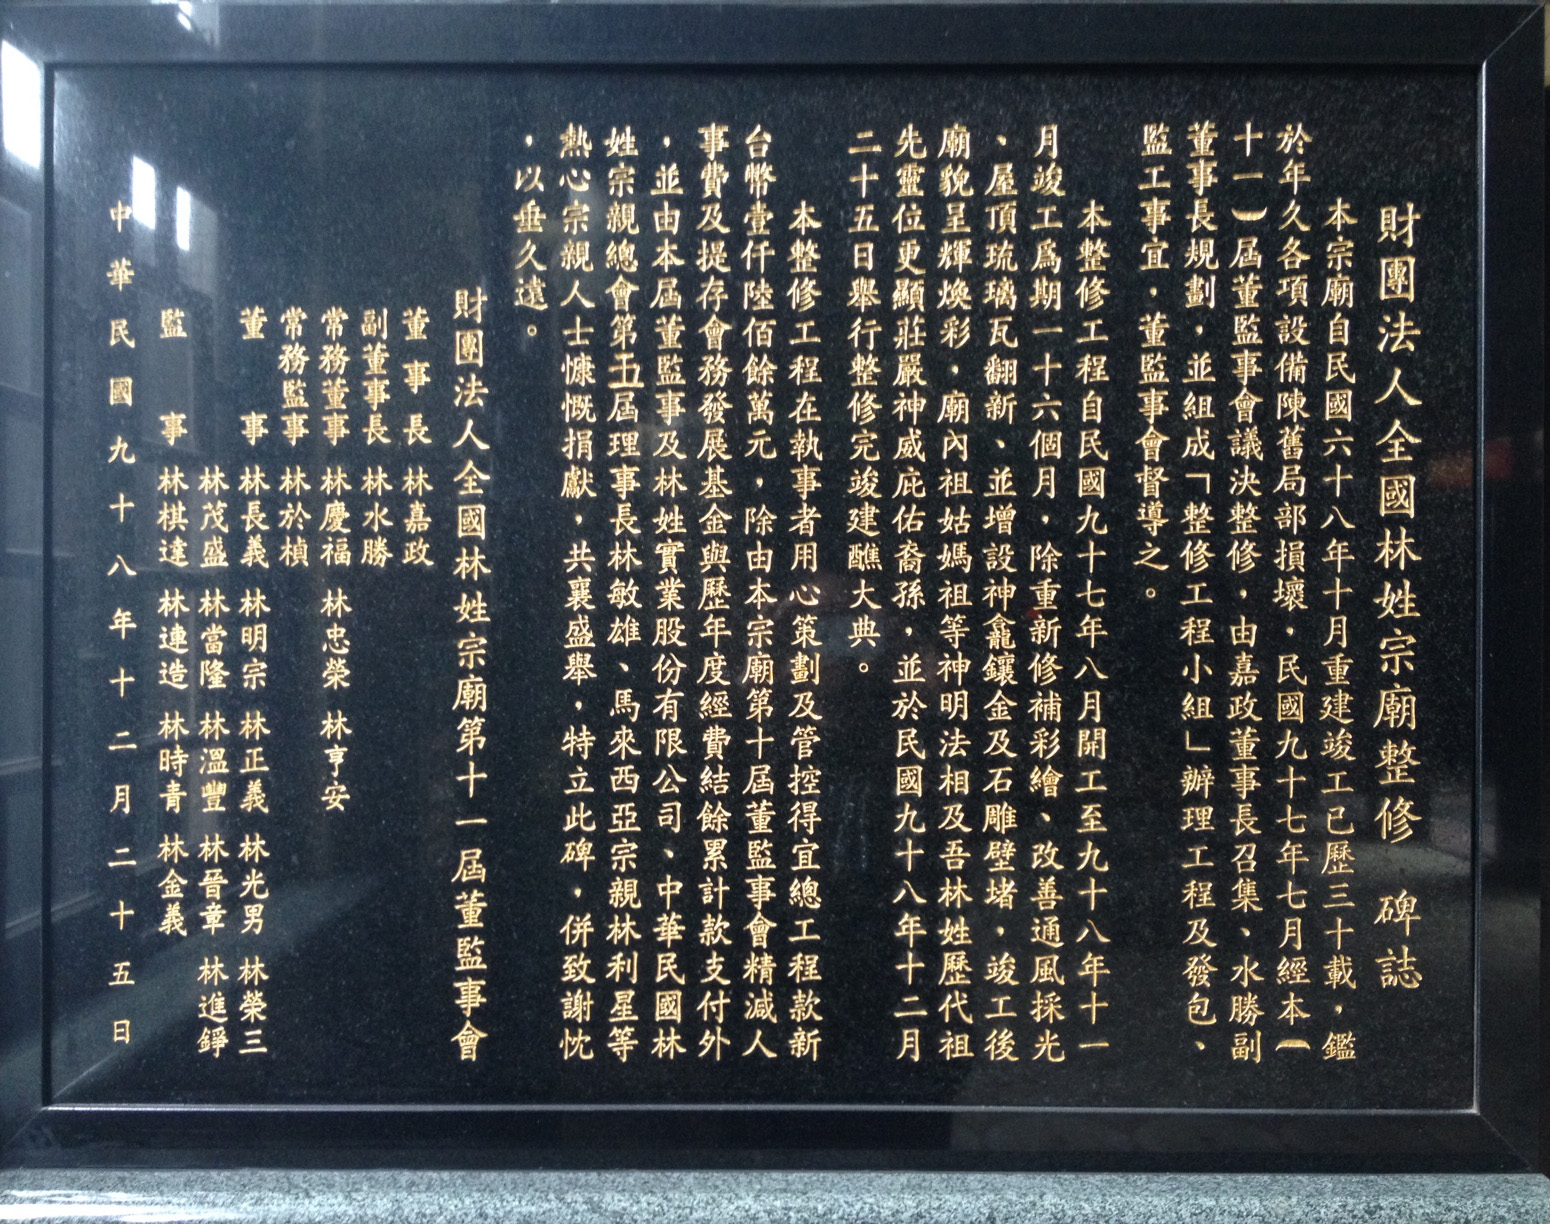 財團法人全國林姓宗廟整修　碑誌
本宗廟自民國六十八年十月重建竣工已歷三十載，鑑
於年久各項設備陳舊局部損壞，民國九十七年七月經本（
十一）屆董監事會議決整修，由嘉政董事長召集、水勝副
董事長規劃，並組成「整修工程小組」辦理工程及發包、
監工事宜，董監事會督導之。
本整修工程自民國九十七年八月開工至九十八年十一
月竣工爲期一十六個月，除重新修補彩繪、改善通風採光
、屋頂琉璃瓦翻新、並增設神龕鑲金及石雕壁堵，竣工後
廟貌呈輝煥彩，廟內祖姑媽祖等神明法相及吾林姓歷代祖
先靈位更顯莊嚴神威庇佑裔孫，並於民國九十八年十二月
二十五日舉行整修完竣建醮大典。
本整修工程在執事者用心策劃及管控得宜總工程款新
台幣壹仟陸佰餘萬元，除由本宗廟第十屆董監事會精減人
事費及提存會務發展基金與歷年度經費結餘累計款支付外
，並由本屆董監事及林姓實業股份有限公司、中華民國林
姓宗親總會第五屆理事長林敏雄、馬來西亞宗親林利星等
熱心宗親人士慷慨捐獻，共襄盛舉，特立此碑，併致謝忱
，以垂久遠。
財團法人全國林姓宗廟第十一屆董監事會
董事長　林嘉政
副董事長　林水勝
常務董事　林慶福　林忠榮　林亨安
常務監事　林於楨
董事　林長義　林明宗　林正義　林光男　林榮三
林茂盛　林當隆　林溫豐　林晉章　林進錚
監事　林棋達　林連造　林時青　林金義
中華民國九十八年十二月二十五日